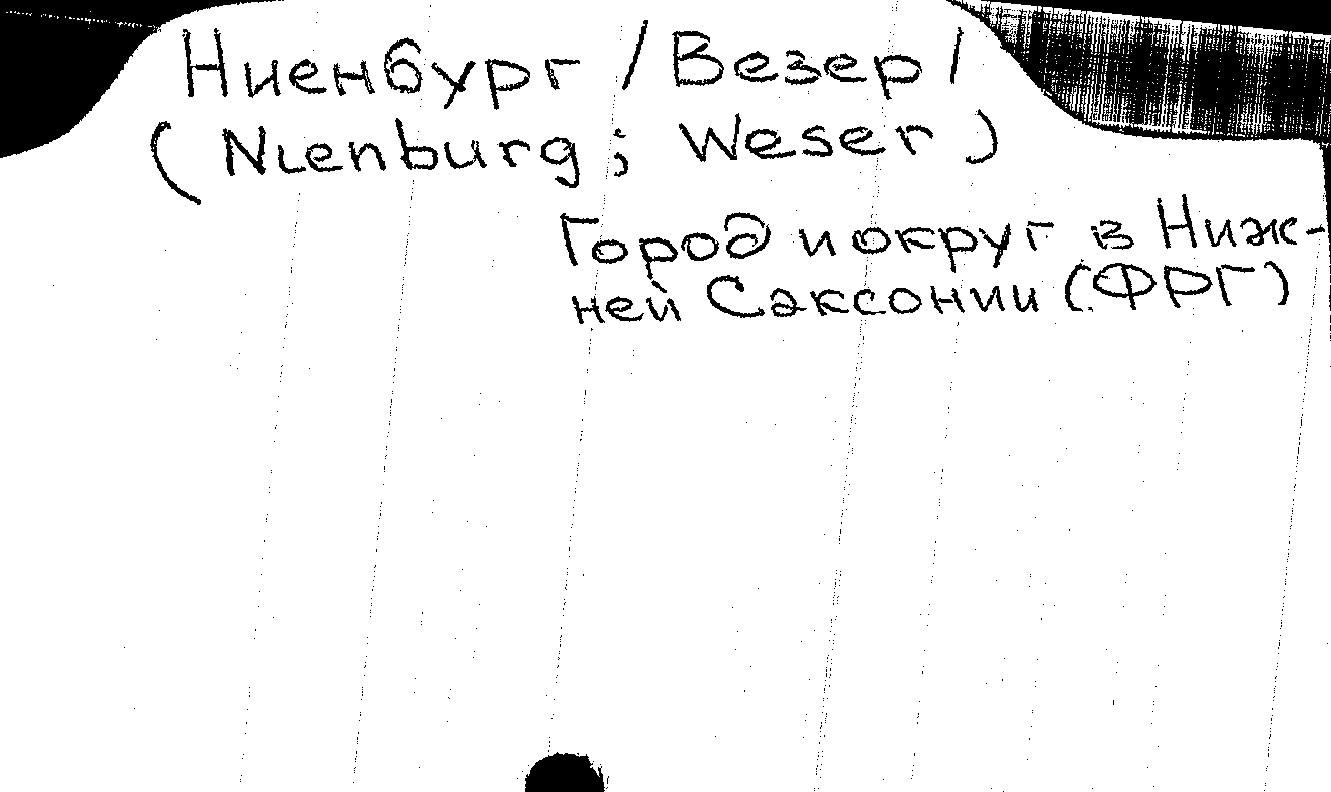 Ниенбург /Везер/
(Nienburg; Weser)
Город и округ в Ниж-
ней Саксонии (ФРГ)